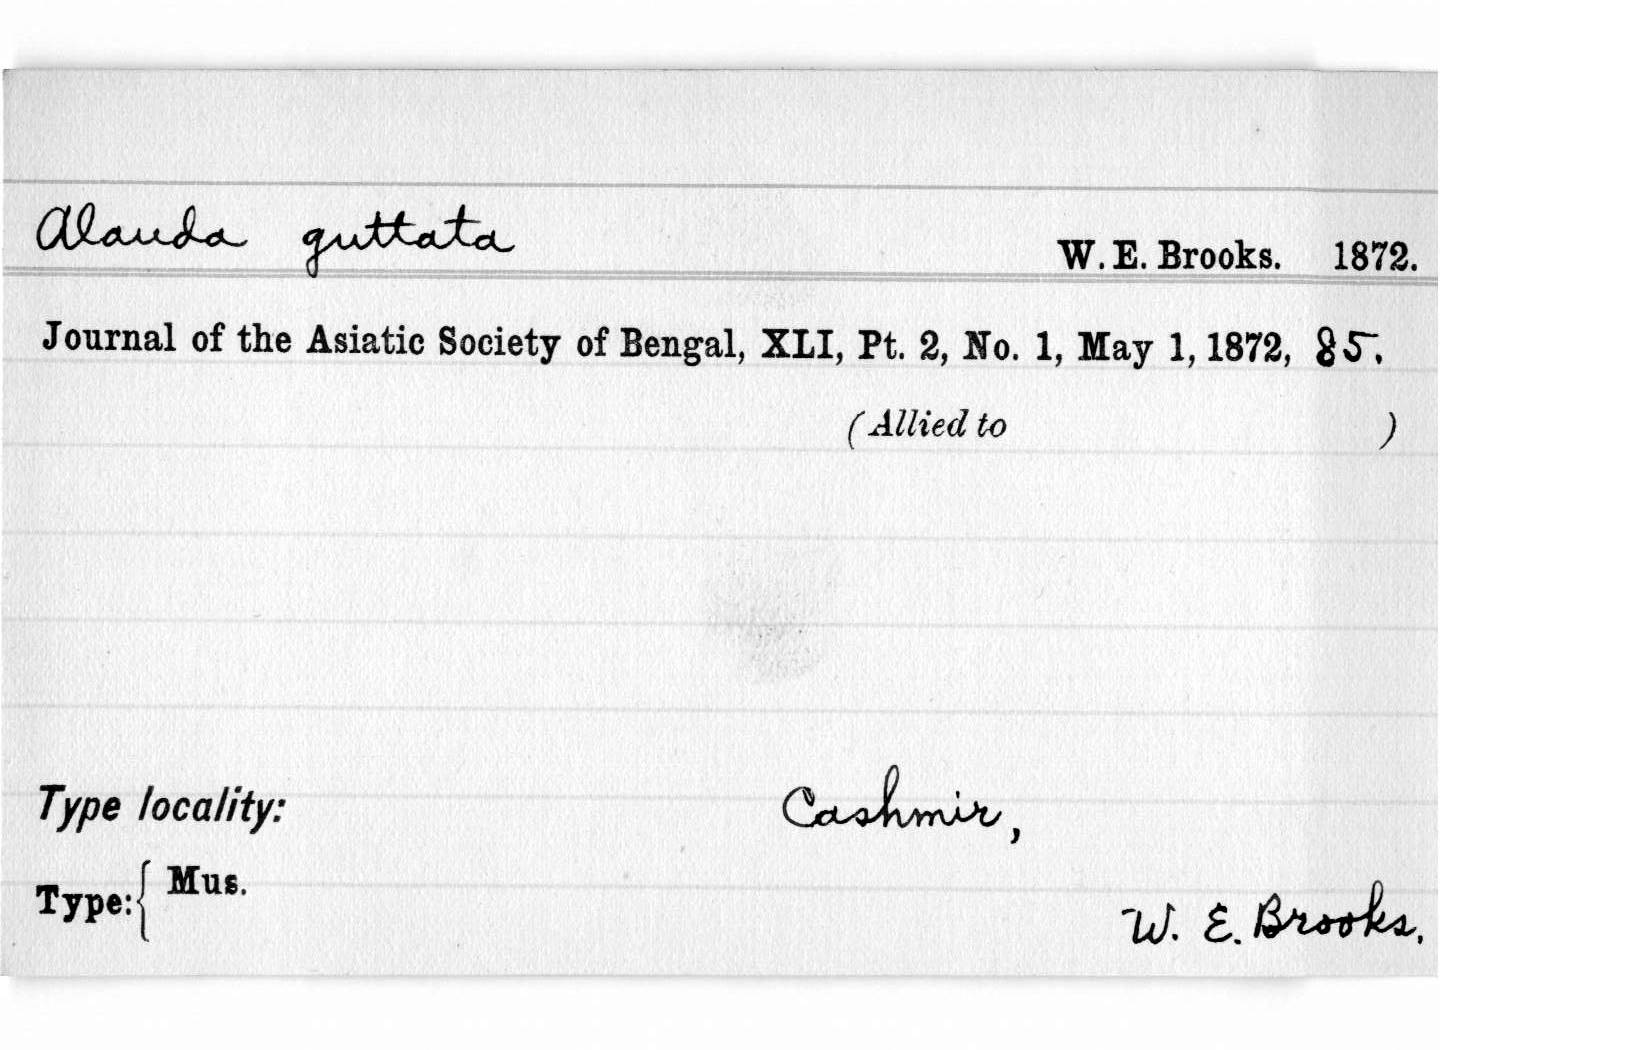 Alauda guttata W. E. Brooks. 1872.
Journal of the Asiatic Society of Bengal, XLI, Pt. 2, No. 1, May 1, 1872, 85.
(Allied to )
Type locality: Cashmir,
Type: { Mus.
W. E. Brooks.